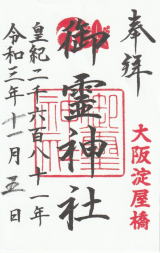 奉拝
大阪淀屋橋
御霊神社
皇紀二千六百八十一年
令和三年十一月五日